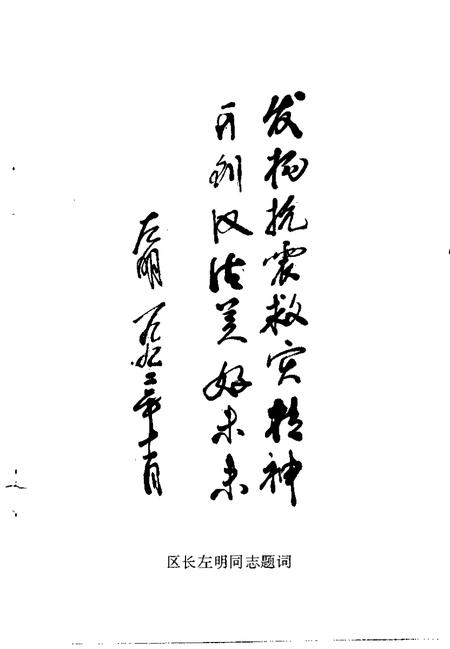 发扬抗震救灾精神
开创汉沽美好未来
左明 一九九二年十一月
区长左明同志题词